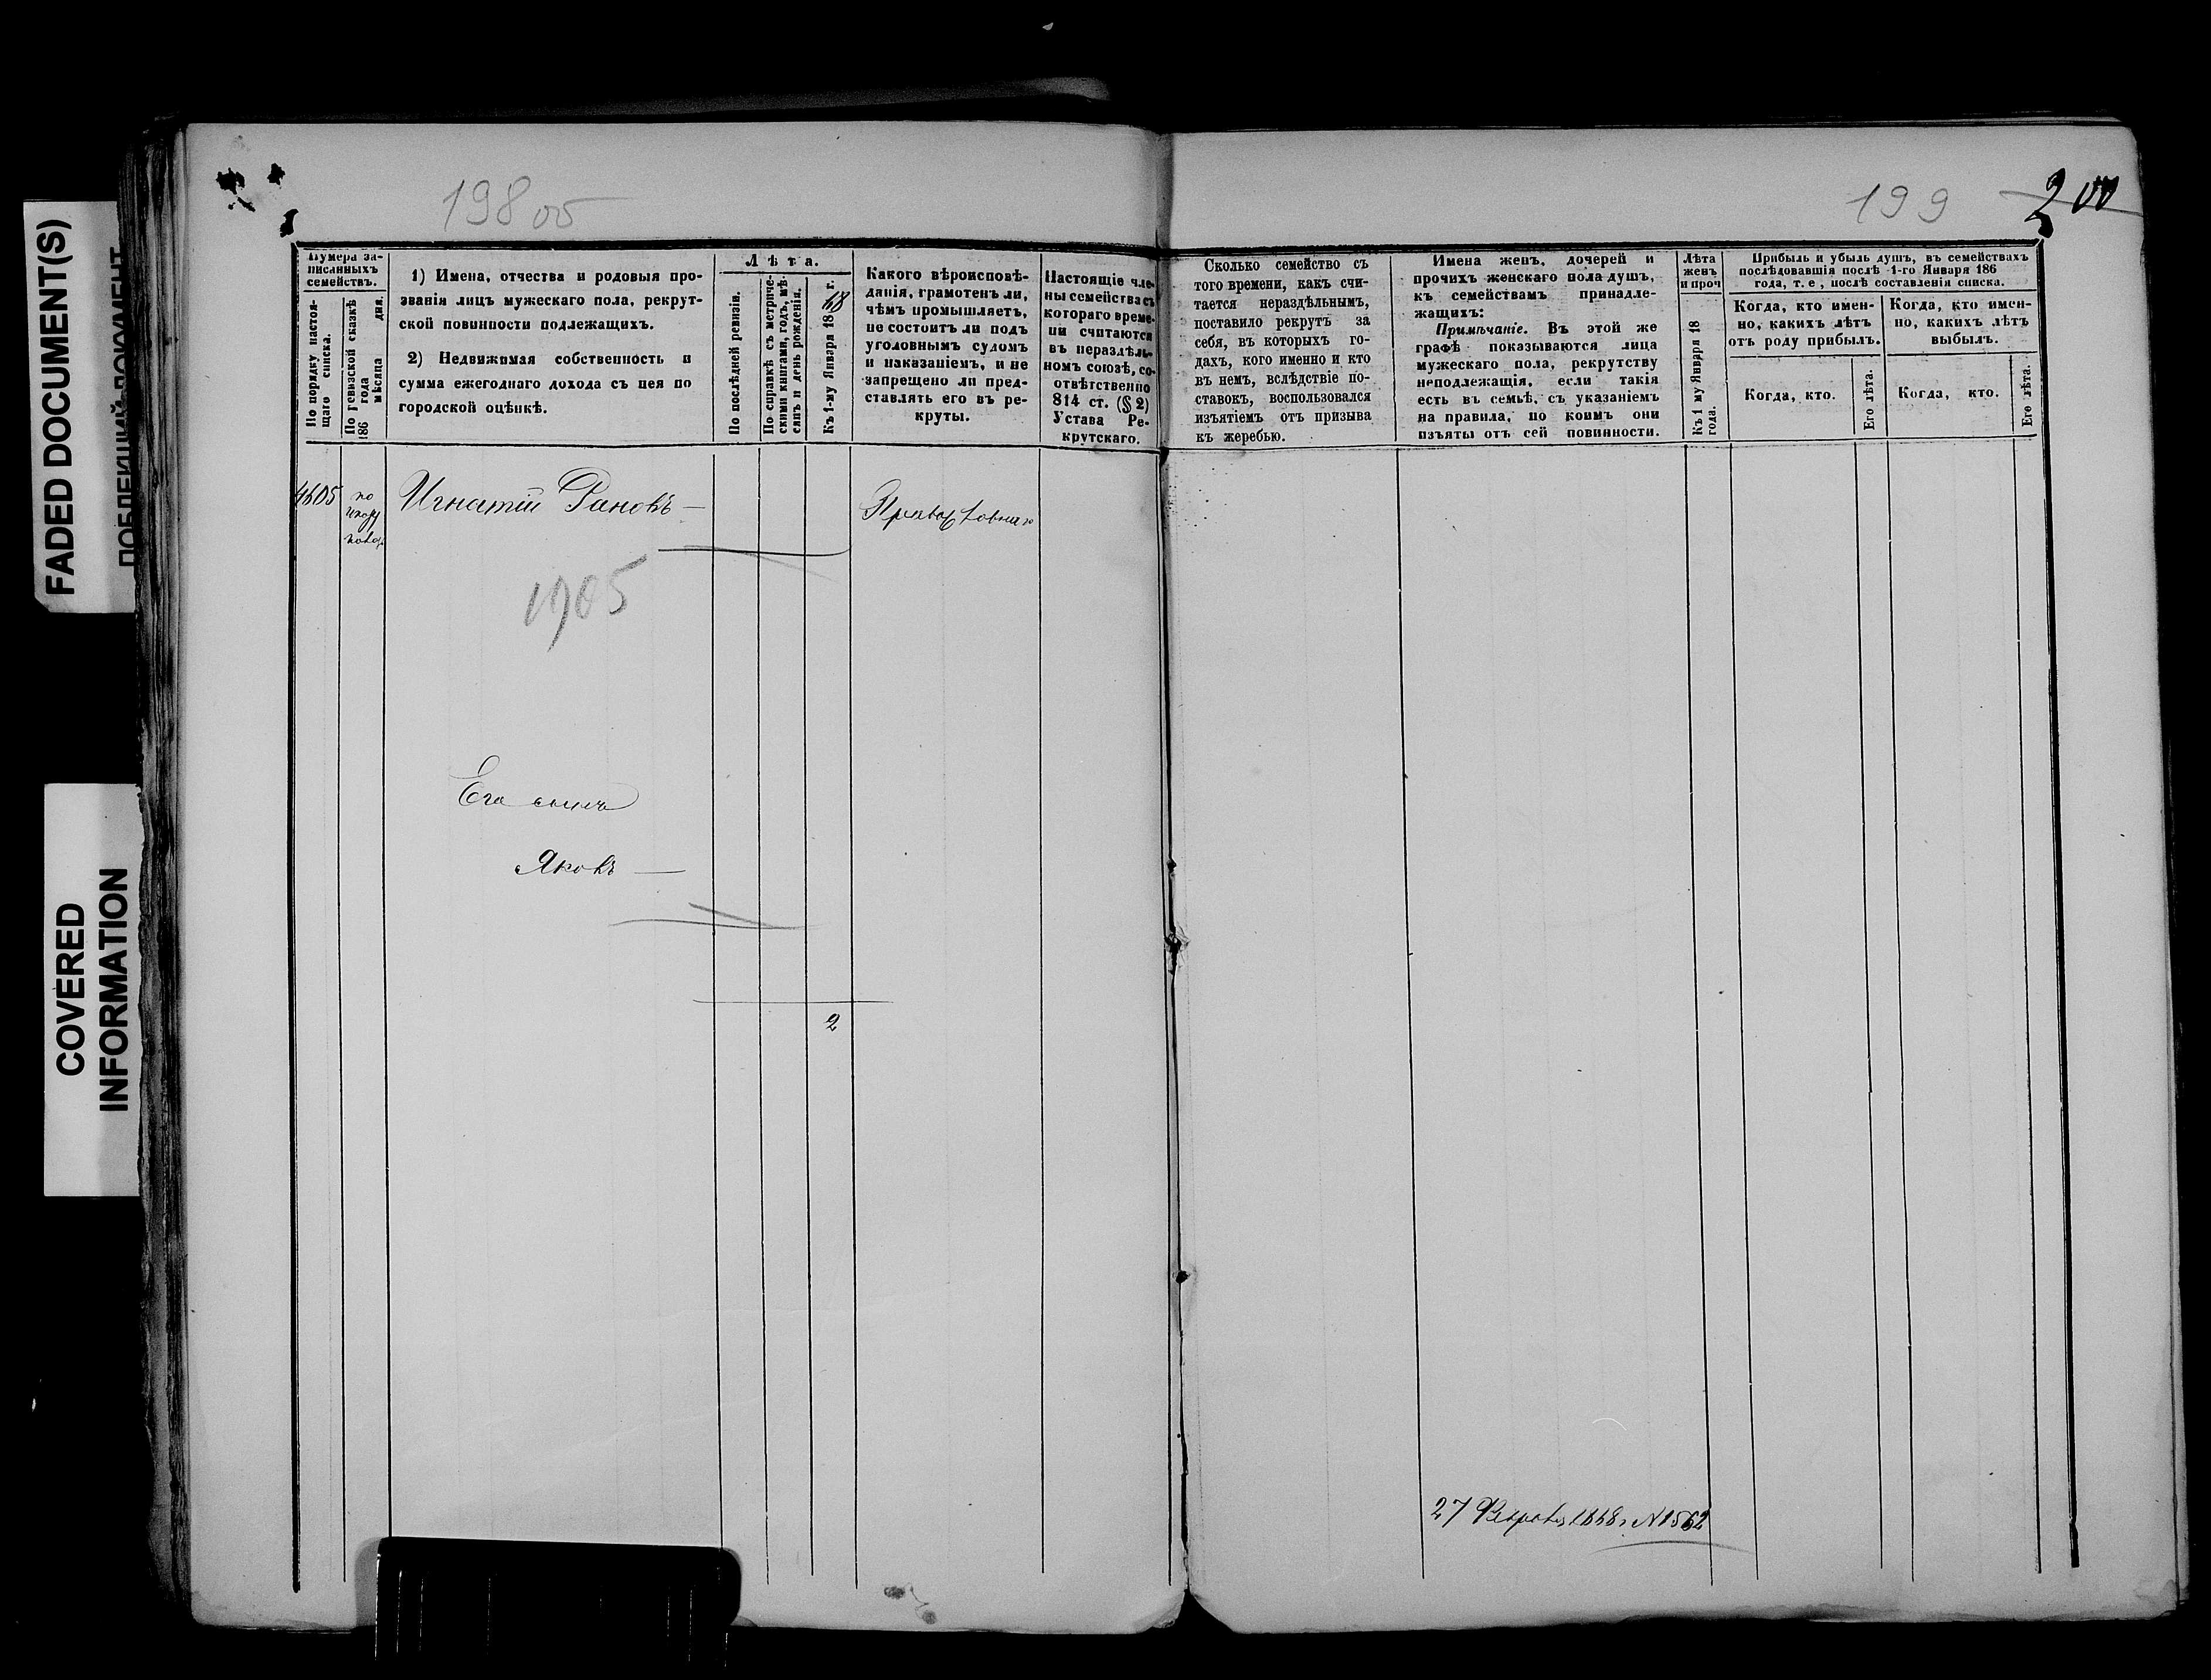 FADED DOCUMENT(S)
COVERED
INFORMATION
198 об
199
200
Нумера за-
писанныхъ
семействъ.
По порядку настоя-
щаго списка.
По ревизской сказкѣ
186 года
мѣсяца дня.
1) Имена, отчества и родовыя про-
званія лицъ мужескаго пола, рекрут-
ской повинности подлежащихъ.
2) Недвижимая собственность и
сумма ежегоднаго дохода съ нея по
городской оцѣнкѣ.
Лѣта.
По послѣдней ревизіи.
По справкѣ съ метриче-
скими книгами, годъ, мѣ-
сяцъ и день рожденія.
Къ 1-му Января 1868 г.
Какого вѣроисповѣ-
данія, грамотенъ ли,
чѣмъ промышляетъ,
не состоитъ ли подъ
уголовнымъ судомъ
и наказаніемъ, и не
запрещено ли пред-
ставлять его въ ре-
круты.
Настоящіе чле-
ны семейства съ
котораго време-
ни считаются
въ нераздѣль-
номъ союзѣ, со-
отвѣтственно
814 ст. (§ 2)
Устава Ре-
крутскаго.
Сколько семейство съ
того времени, какъ счи-
тается нераздѣльнымъ,
поставило рекрутъ за
себя, въ которыхъ го-
дахъ, кого именно и кто
въ немъ, вслѣдствіе по-
ставокъ, воспользовался
изъятіемъ отъ призыва
къ жеребью.
Имена женъ, дочерей и
прочихъ женскаго пола душъ,
къ семействамъ принадле-
жащихъ:
Примѣчаніе. Въ этой же
графѣ показываются лица
мужескаго пола, рекрутству
неподлежащія, если такія
есть въ семьѣ, съ указаніемъ
на правила, по коимъ они
изъяты отъ сей повинности.
Лѣта
женъ
и проч
Къ 1 му Января 18
года.
Прибыль и убыль душъ, въ семействахъ
послѣдовавшія послѣ 1-го Января 186
года, т. е, послѣ составленія списка.
Когда, кто имен-
но, какихъ лѣтъ
отъ роду прибылъ.
Когда, кто имен-
но, какихъ лѣтъ
выбылъ.
Когда, кто.
Его лѣта.
Когда, кто.
Его лѣта.
по
Игнатій Рановъ —
1905
Его сынъ
Яковъ —
2
27 Февраля 1868 г №1562